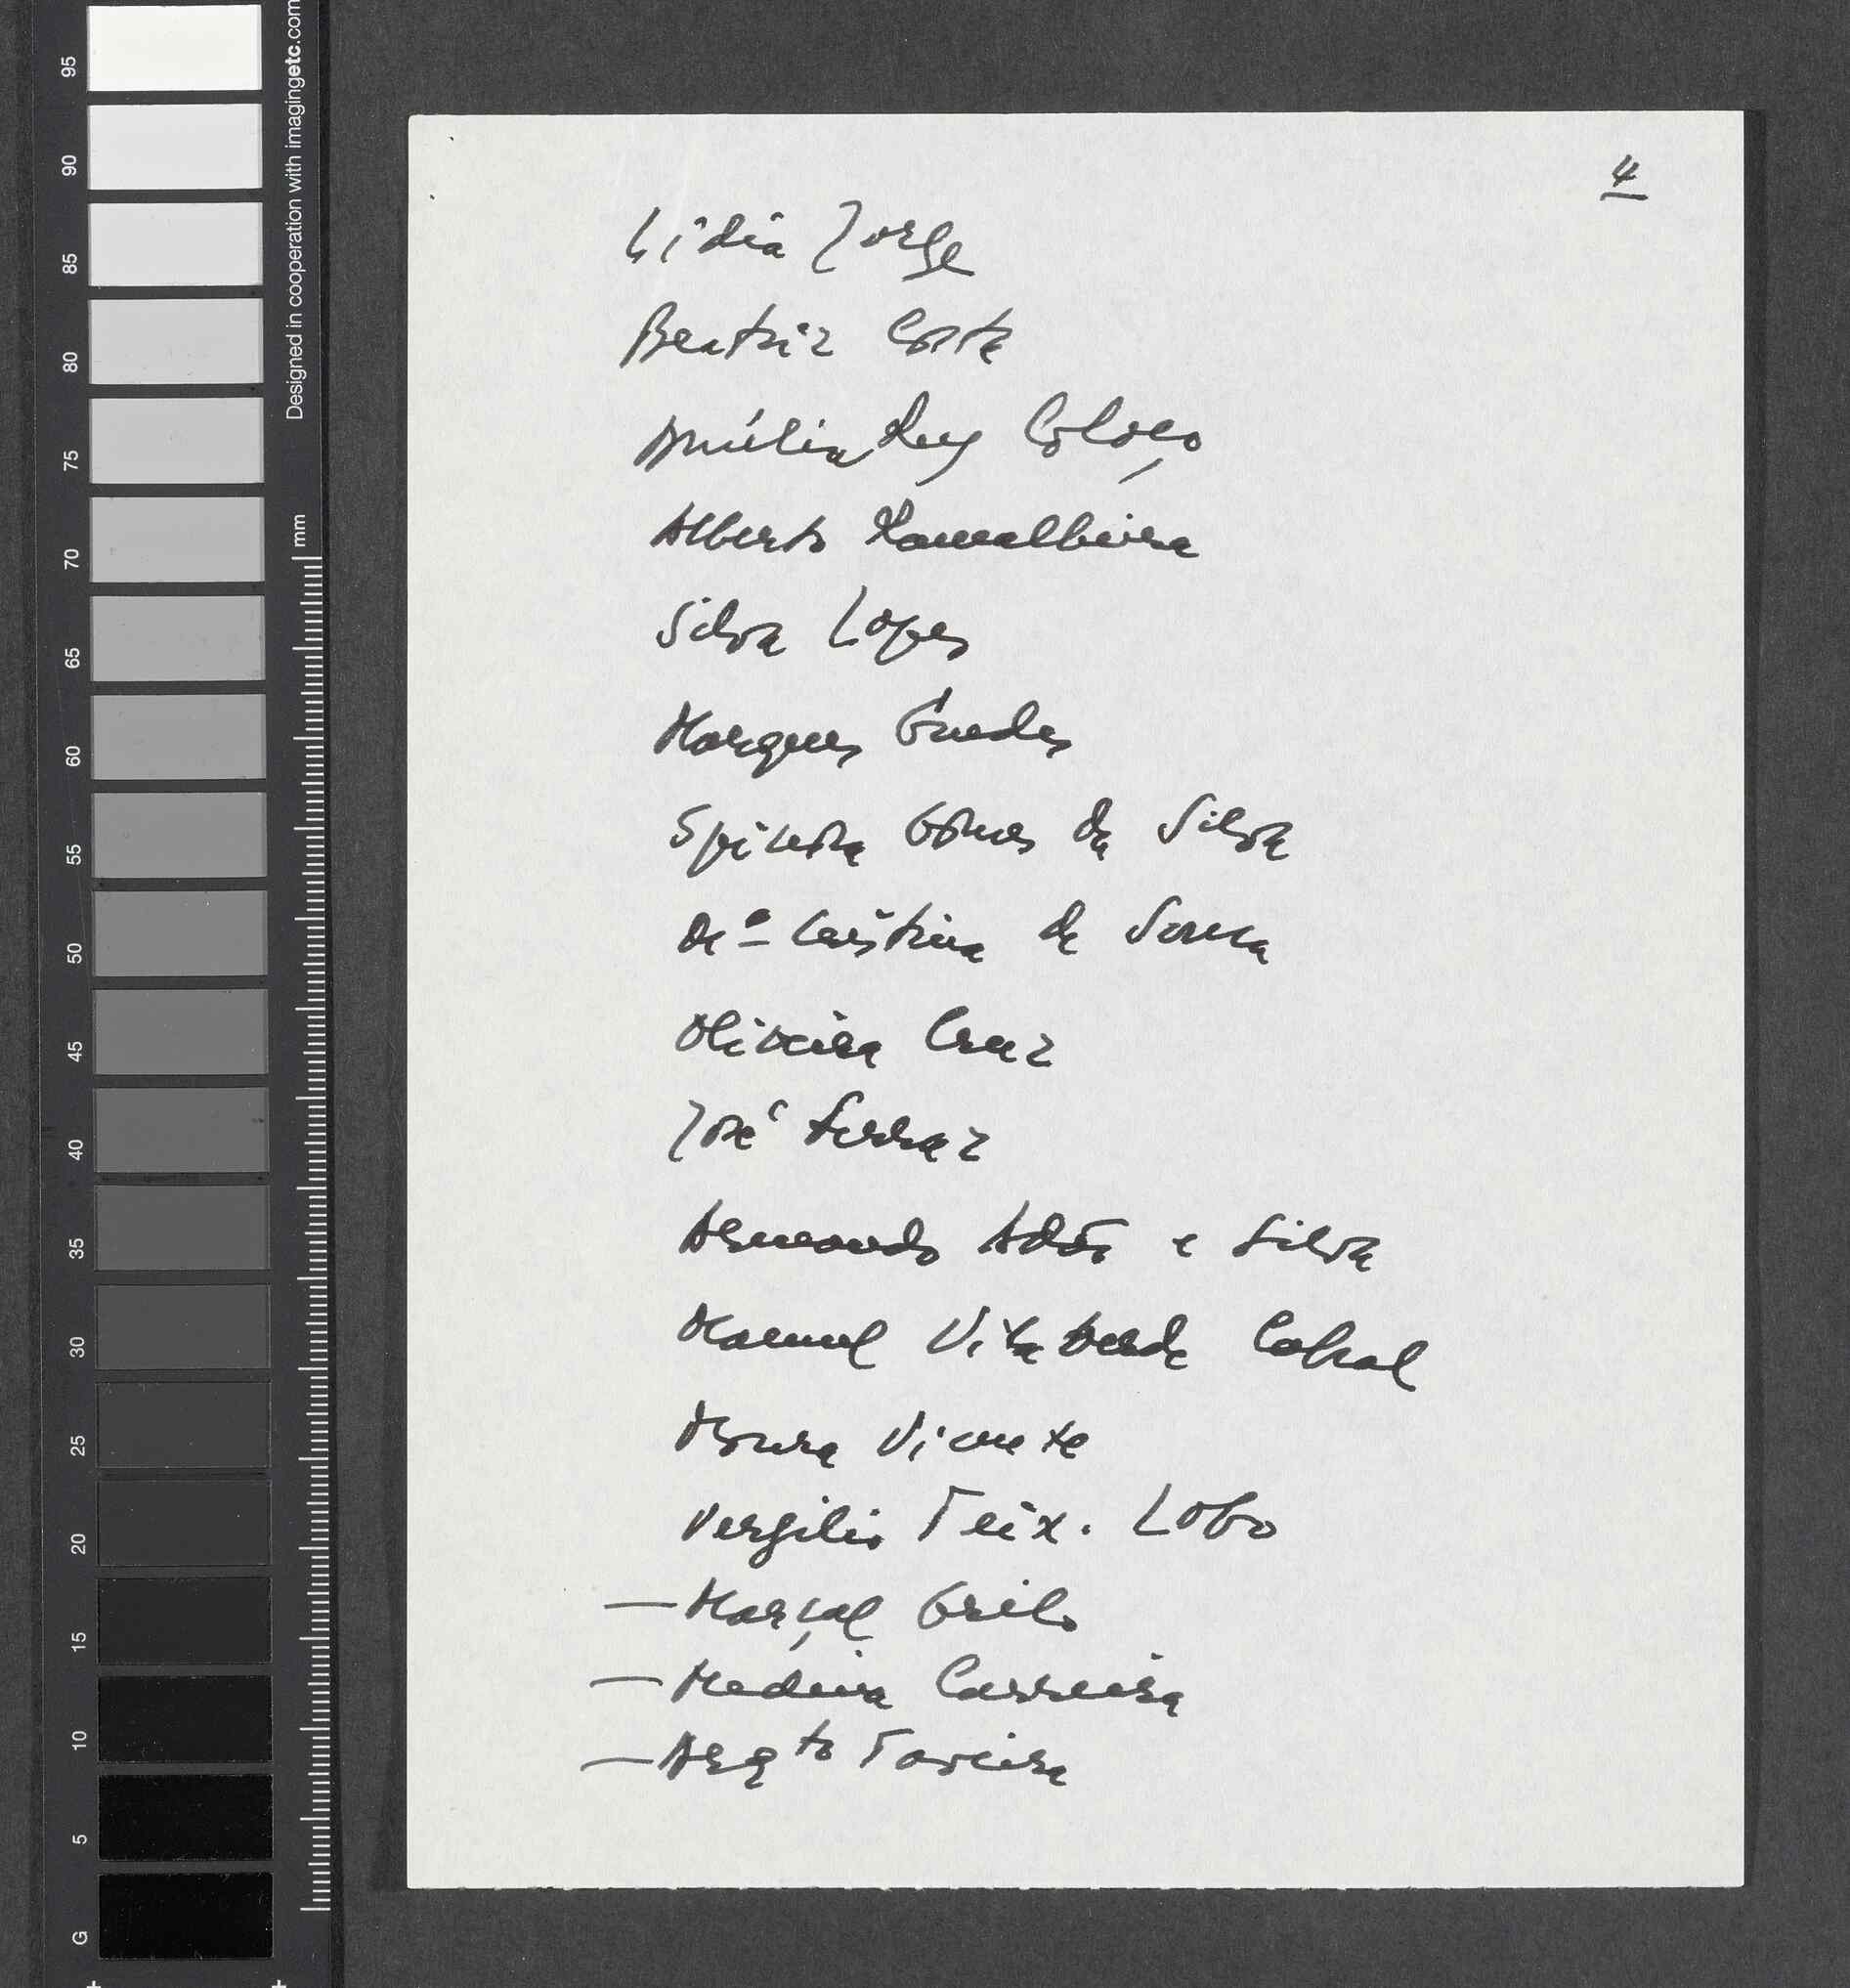 4
Lídia Jorge
Beatriz Costa
Amélia Rey Colaço
Alberto Ramalheira
Silva Lopes
Marques Guedes
Spínola Gomes da Silva
Drª Cristina de Sousa
Oliveira Cruz
José Ferraz
Armando Adão e Silva
Manuel Vila Verde Cabral
Moura Vicente
Vergílio Teix. Lobo
— Marçal Grilo
— Medina Carreira
— Arqto Taveira
Designed in cooperation with imagingetc.com
mm
95
90
85
80
75
70
65
60
55
50
45
40
35
30
25
20
15
10
5
G